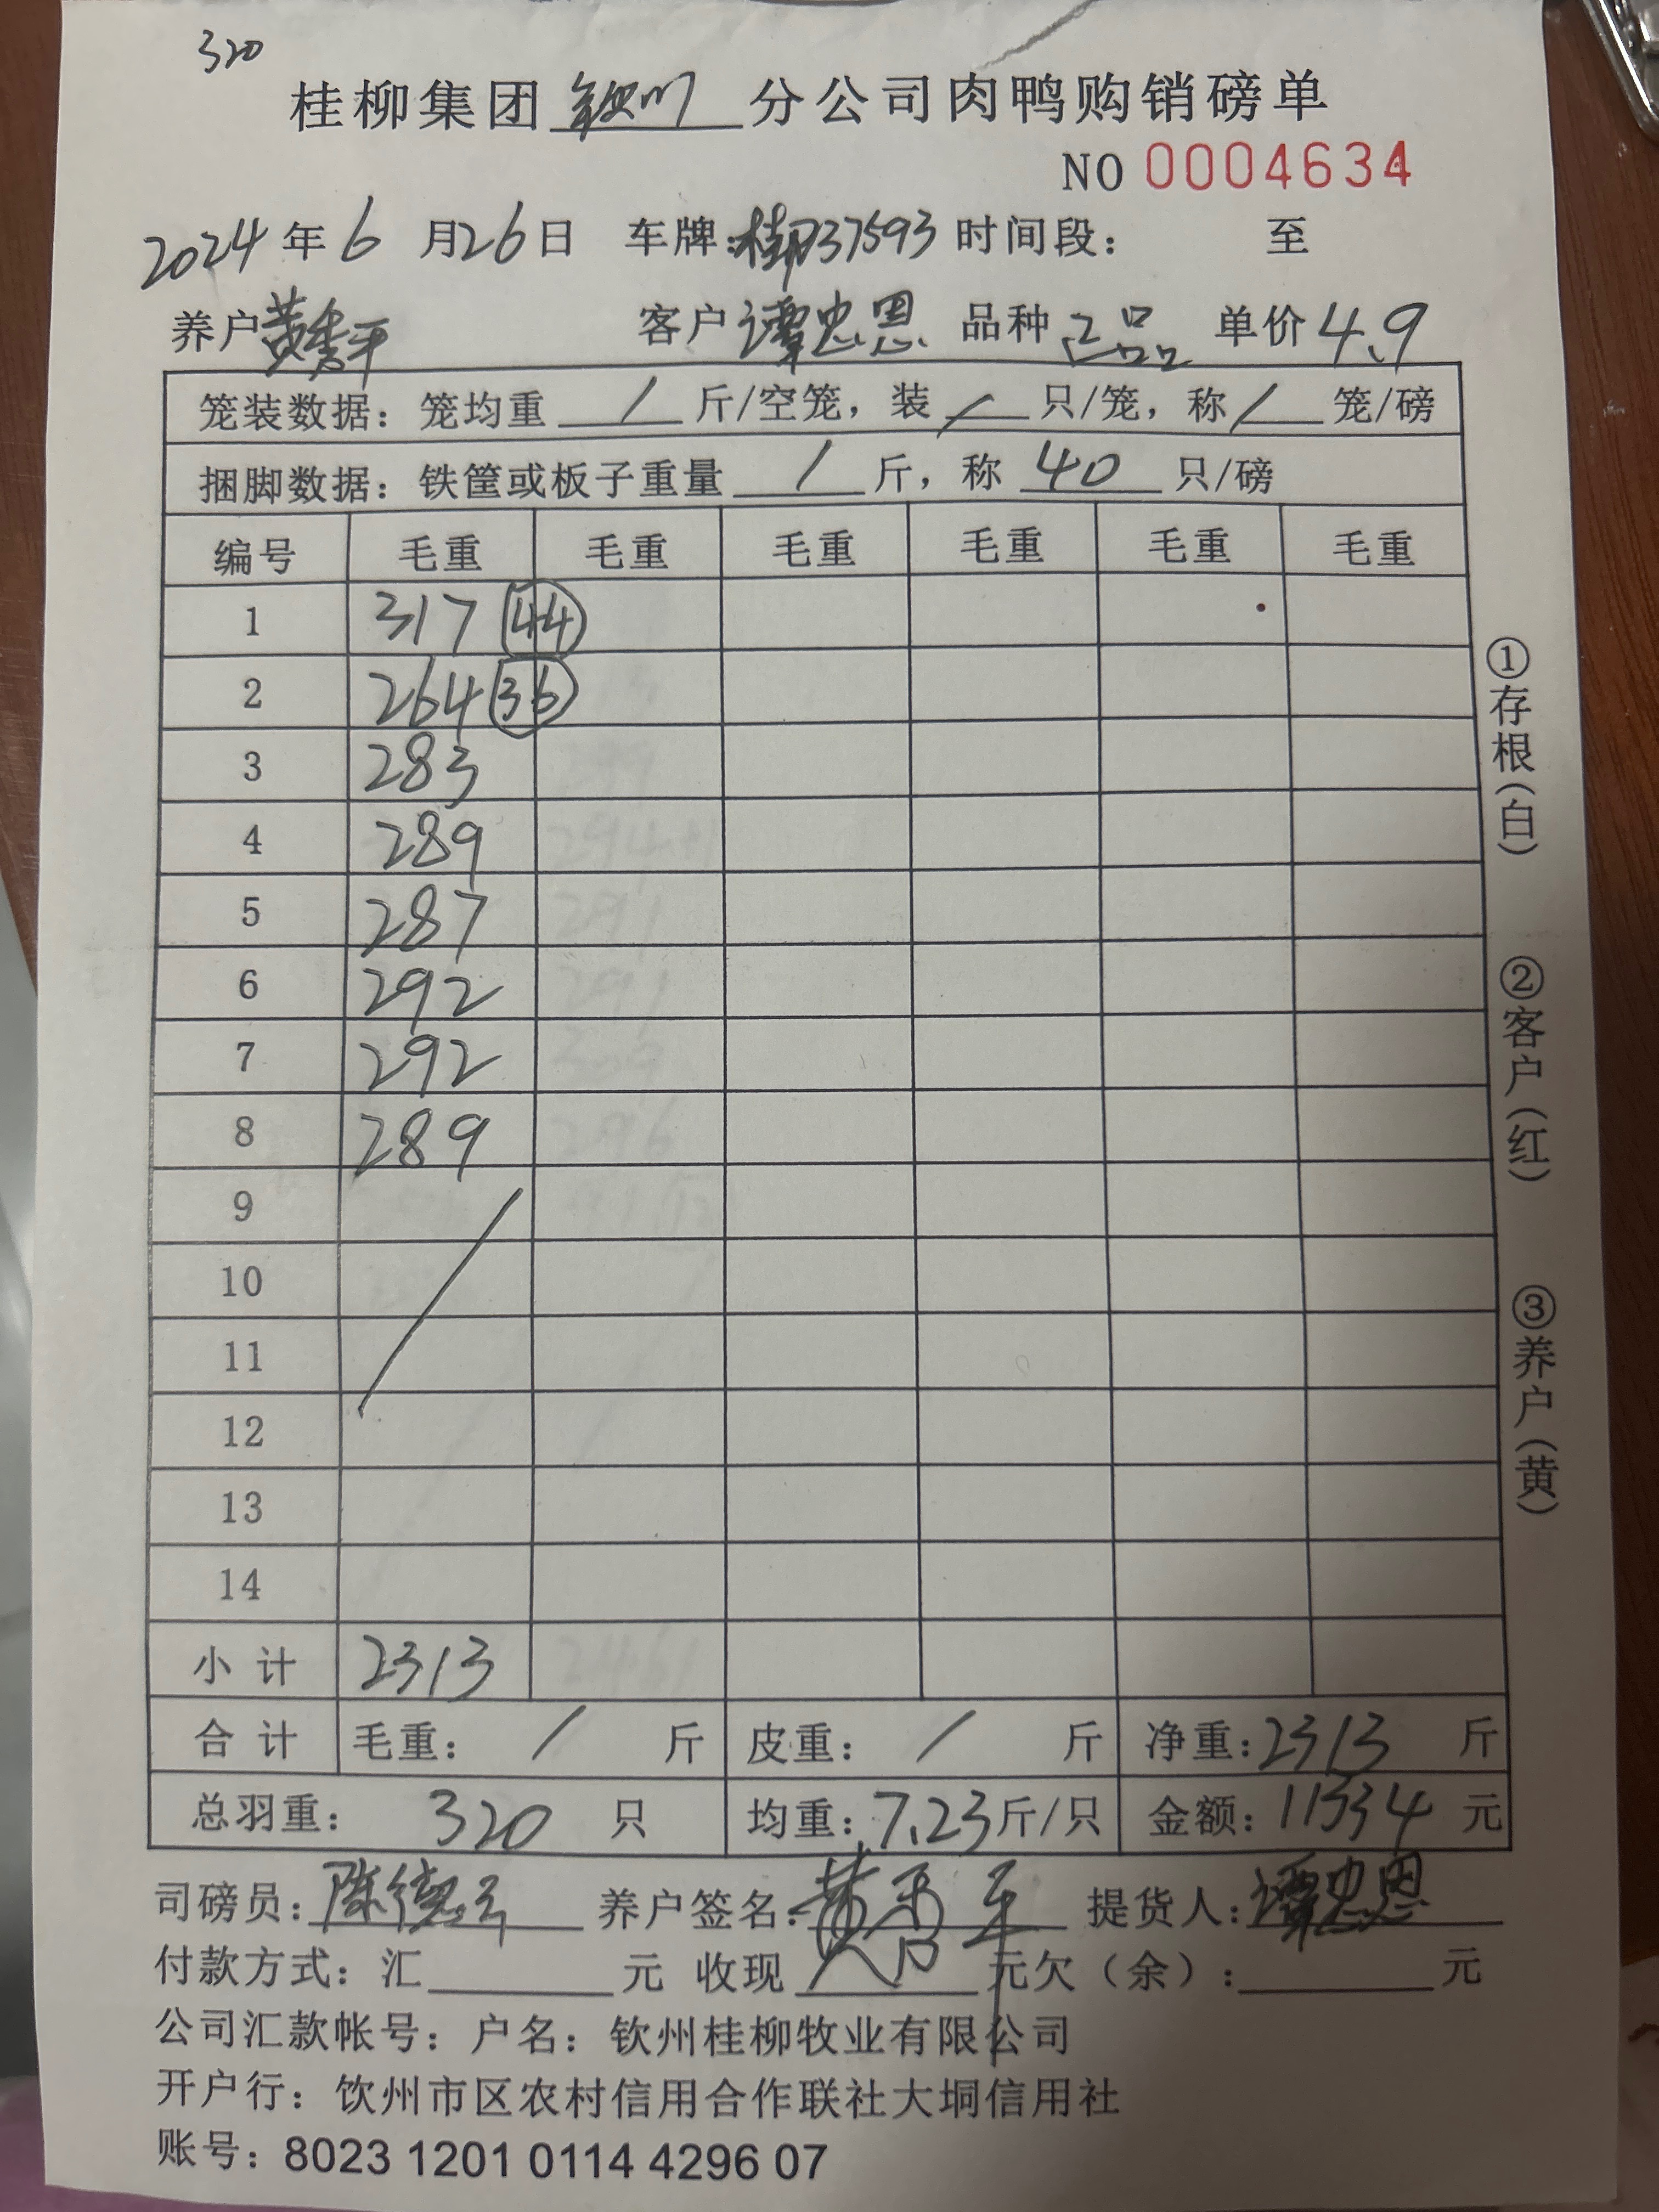 320
桂柳集团钦州分公司肉鸭购销磅单
NO 0004634
2024年6月26日 车牌:桂 37593 时间段: 至
养户 黄秀平 客户 谭忠恩 品种 正品 单价 4.9
笼装数据: 笼均重 / 斤/空笼, 装 / 只/笼, 称 / 笼/磅
捆脚数据: 铁筐或板子重量 / 斤, 称 40 只/磅
编号 毛重 毛重 毛重 毛重 毛重 毛重
1 317 44
2 264 36
3 283
4 289
5 287
6 292
7 292
8 289
9
10
11
12
13
14
小计 2313
合计 毛重: / 斤 皮重: / 斤 净重: 2313 斤
总羽重: 320 只 均重: 7.23 斤/只 金额: 11334 元
司磅员: 陈德 养户签名: 黄秀平 提货人: 谭忠恩
付款方式: 汇 元 收现 元欠(余): 元
公司汇款帐号: 户名: 钦州桂柳牧业有限公司
开户行: 饮州市区农村信用合作联社大垌信用社
账号: 8023 1201 0114 4296 07
①存根(白)
②客户(红)
③养户(黄)